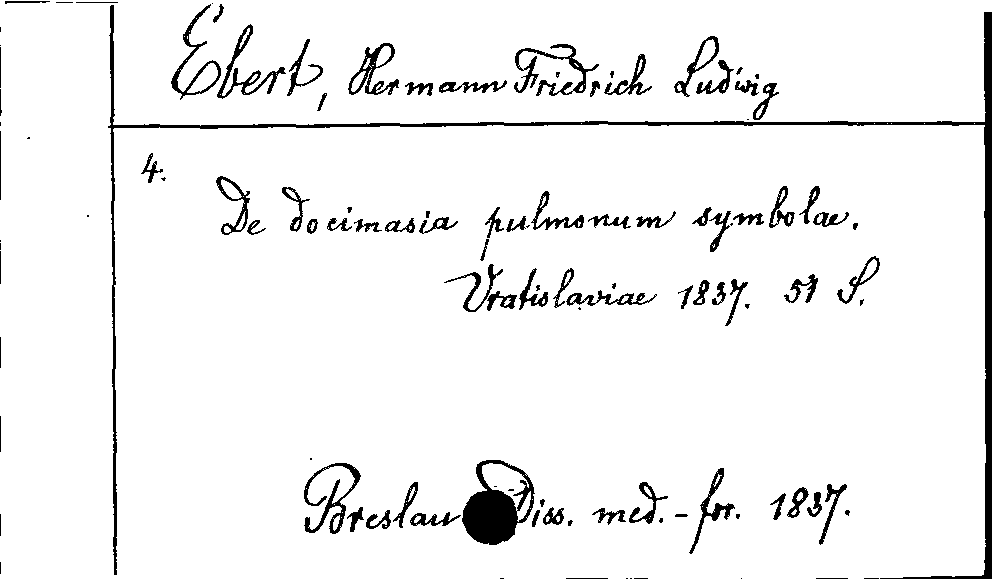 Ebert, Hermann Friedrich Ludwig
4.
De docimasia pulmonum symbolae.
Vratislaviae 1837. 51 S.
Breslau Diss. med.-for. 1837.